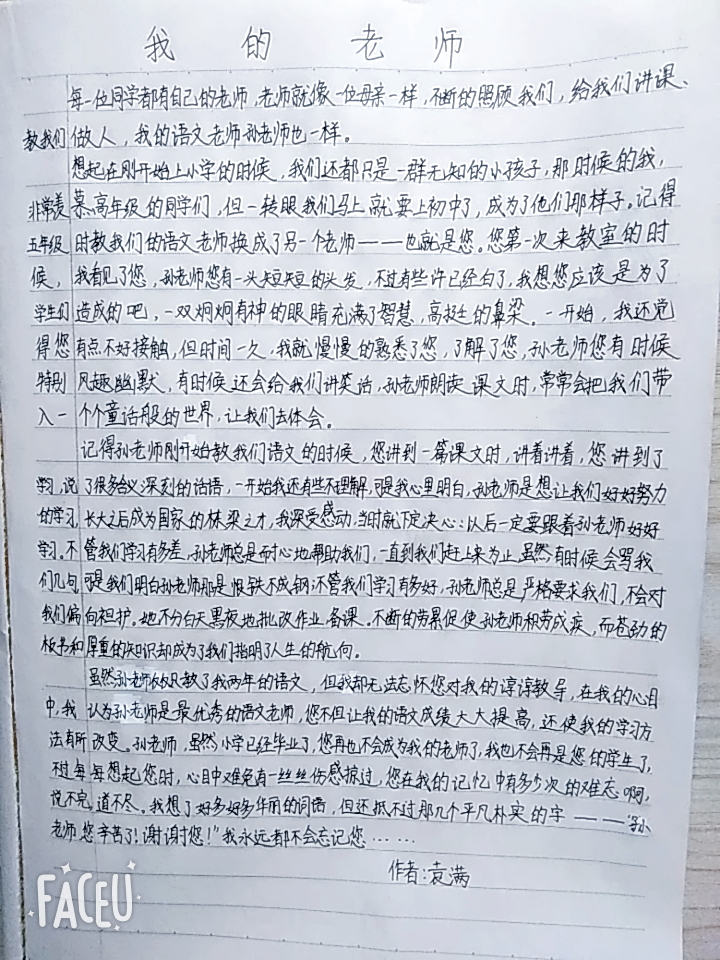 我的老师
每一位同学都有自己的老师，老师就像一位母亲一样，不断的照顾我们，给我们讲课、
教我们做人，我的语文老师孙老师也一样。
想起在刚开始上小学的时候，我们还都只是一群无知的小孩子，那时候的我，
非常羡慕高年级的同学们，但一转眼我们马上就要上初中了，成为了他们那样子。记得
五年级时教我们的语文老师换成了另一个老师——也就是您。您第一次来教室的时
候，我看见了您，孙老师您有一头短短的头发，不过有些许已经白了，我想您应该是为了
学生们造成的吧，一双炯炯有神的眼睛充满了智慧，高挺的鼻梁。一开始，我还觉
得您有点不好接触，但时间一久，我就慢慢的熟悉了您，了解了您，孙老师您有时候
特别风趣幽默，有时候还会给我们讲笑话，孙老师朗读课文时，常常会把我们带
入一个个童话般的世界，让我们去体会。
记得孙老师刚开始教我们语文的时候，您讲到一篇课文时，讲着讲着，您讲到了
学习，说了很多含义深刻的话语，一开始我还有些不理解，可是我心里明白，孙老师是想让我们好好努力
的学习长大之后成为国家的栋梁之才，我深受感动，当时就下定决心：以后一定要跟着孙老师好好
学习。不管我们学习有多差，孙老师总是耐心地帮助我们，一直到我们赶上来为止。虽然有时候会骂我
们几句可是我们明白孙老师那是恨铁不成钢；不管我们学习有多好，孙老师总是严格要求我们，不会对
我们偏向袒护。她不分白天黑夜地批改作业备课。不断的劳累促使孙老师积劳成疾，而苍劲的
板书和厚重的知识却成为了我们指明了人生的航向。
虽然孙老师您只教了我两年的语文，但我都无法忘怀您对我的谆谆教导，在我的心目
中，我认为孙老师是最优秀的语文老师，您不但让我的语文成绩大大提高，还使我的学习方
法有所改变。孙老师，虽然小学已经毕业了，您再也不会成为我的老师了，我也不会再是您的学生了，
不过每每想起您时，心目中难免有一丝丝伤感掠过，您在我的记忆中有多少次的难忘啊，
说不完道不尽。我想了好多好多华丽的词语，但还抵不过那几个平凡朴实的字——“孙
老师您辛苦了！谢谢您！”我永远都不会忘记您……
作者：袁满
FACEU